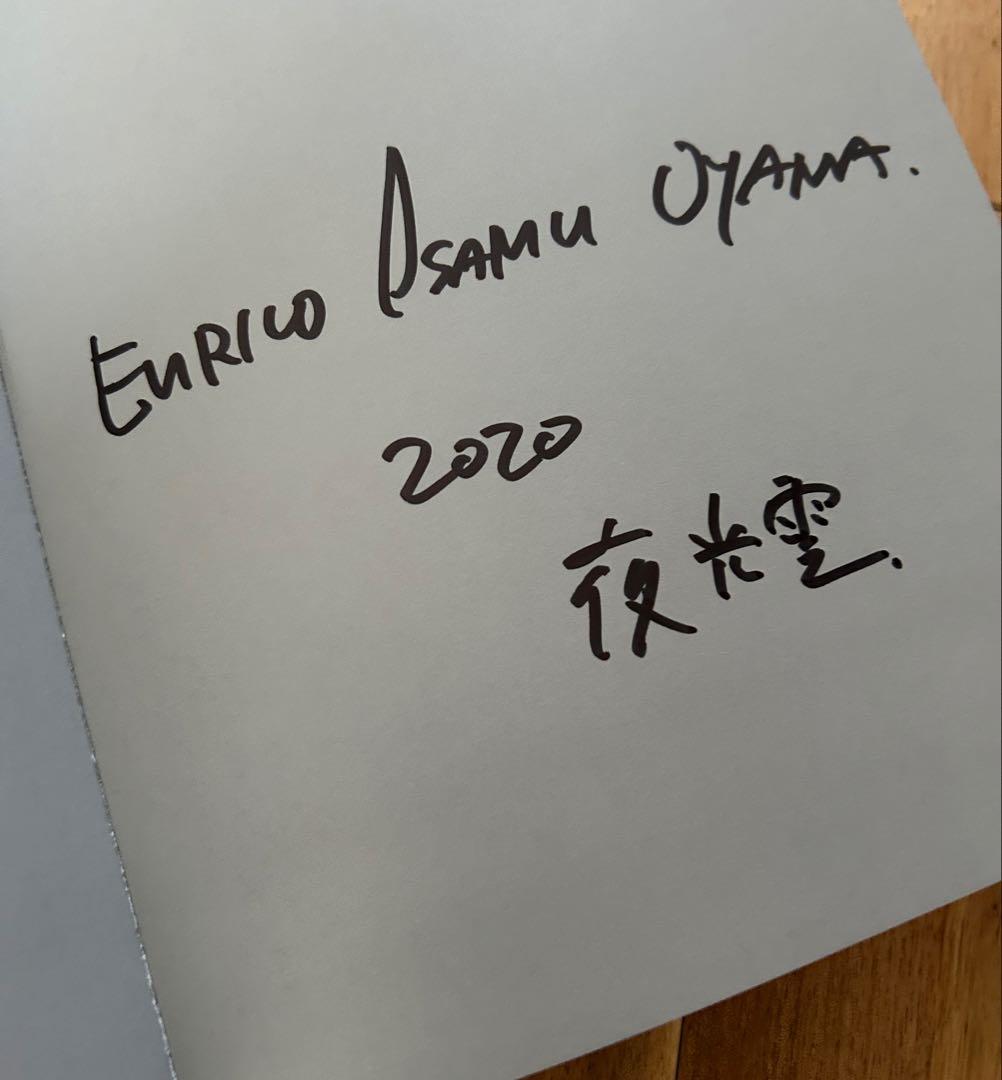 ENRICO ISAMU OYAMA.
2020
夜光雲.